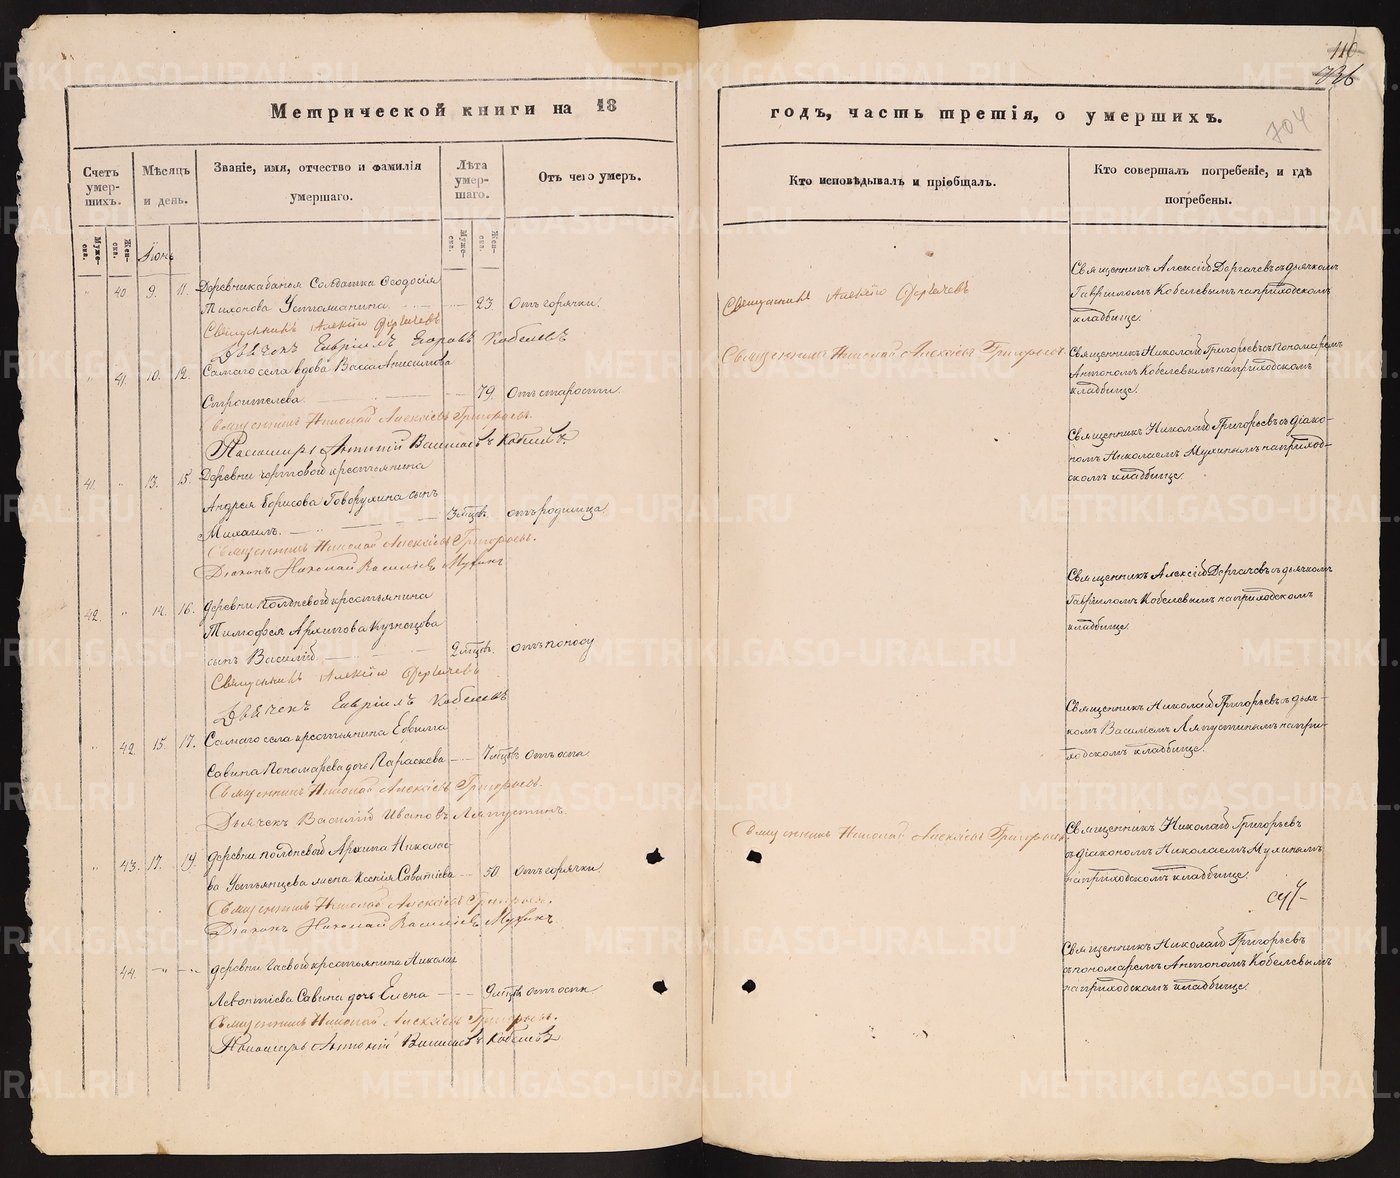 110
736
704
Метрической книги на 18
годъ, часть третія, о умершихъ.
Счетъ умер-шихъ.
Мѣсяцъ и день.
Званіе, имя, отчество и фамилія умершаго.
Лѣта умер-шаго.
Отъ чего умеръ.
Кто исповѣдывалъ и пріобщалъ.
Кто совершалъ погребеніе, и гдѣ погребены.
Муже-ска.
Жен-ска.
Муже-ска.
Жен-ска.
Іюнь
" 40. 9. 11. Деревни Солдатка Ѳеодосія
Тихонова Устюманина 23. Отъ горячки.
Священникъ Алексій Дергачевъ
Дьячекъ Гавріилъ Егоровъ Кобелевъ
Священникъ Алексій Дергачевъ
Священникъ Алексій Дергачевъ съ дьячкомъ
Гавріиломъ Кобелевымъ на приходскомъ
кладбище.
" 41. 10. 12. Самаго села вдова Васса Анисимова
Строителева. 79. Отъ старости.
Священникъ Николай Алексіевъ Григорьевъ.
Пономарь Антоній Васильевъ Кобелевъ.
Священникъ Николай Алексіевъ Григорьевъ
Священникъ Николай Григорьевъ съ пономаремъ
Антономъ Кобелевымъ на приходскомъ
кладбище.
41. " 13. 15. Деревни крестьянина
Андрея Борисова Говорухина сынъ
Михаилъ. 3 мѣсцевъ отъ родимца.
Священникъ Николай Алексіевъ Григорьевъ.
Діаконъ Николай Василіевъ Мухинъ
Священникъ Николай Григорьевъ съ діако-
номъ Николаемъ Мухинымъ на приход-
скомъ кладбище.
42. " 14. 16. Деревни Полдневой крестьянина
Тимофея Архипова Кузнецова
сынъ Василій 2 мѣсцевъ. отъ поносу
Священникъ Алексій Дергачевъ
Дьячекъ Гавріилъ Кобелевъ
Священникъ Алексій Дергачевъ съ дьячкомъ
Гавріиломъ Кобелевымъ на приходскомъ
кладбище.
" 42. 15. 17. Самаго села крестьянина Евфима
Савина Пономарева дочь Параскева 7 мѣсцовъ отъ оспы
Священникъ Николай Алексіевъ Григорьевъ.
Дьячекъ Василій Ивановъ Ляпустинъ.
Священникъ Николай Григорьевъ съ дьяч-
комъ Василіемъ Ляпустинымъ на при-
ходскомъ кладбище.
" 43. 17. 19. Деревни Полдневой Архипа Никола-
ева Устьянцева жена Ксенія Саватіева 50 Отъ горячки
Священникъ Николай Алексіевъ Григорьевъ.
Діаконъ Николай Василіевъ Мухинъ.
Священникъ Николай Алексіевъ Григорьевъ
Священникъ Николай Григорьевъ
съ діакономъ Николаемъ Мухинымъ
на приходскомъ кладбище.
44. деревни Гаевой крестьянина Николая
Левонтіева Савина дочь Елена 9 мѣсцевъ отъ оспы
Священникъ Николай Алексіевъ Григорьевъ.
Пономарь Антоній Васильевъ Кобелевъ
Священникъ Николай Григорьевъ
съ пономаремъ Антономъ Кобелевымъ
на приходскомъ кладбище.
METRIKI.GASO-URAL.RU